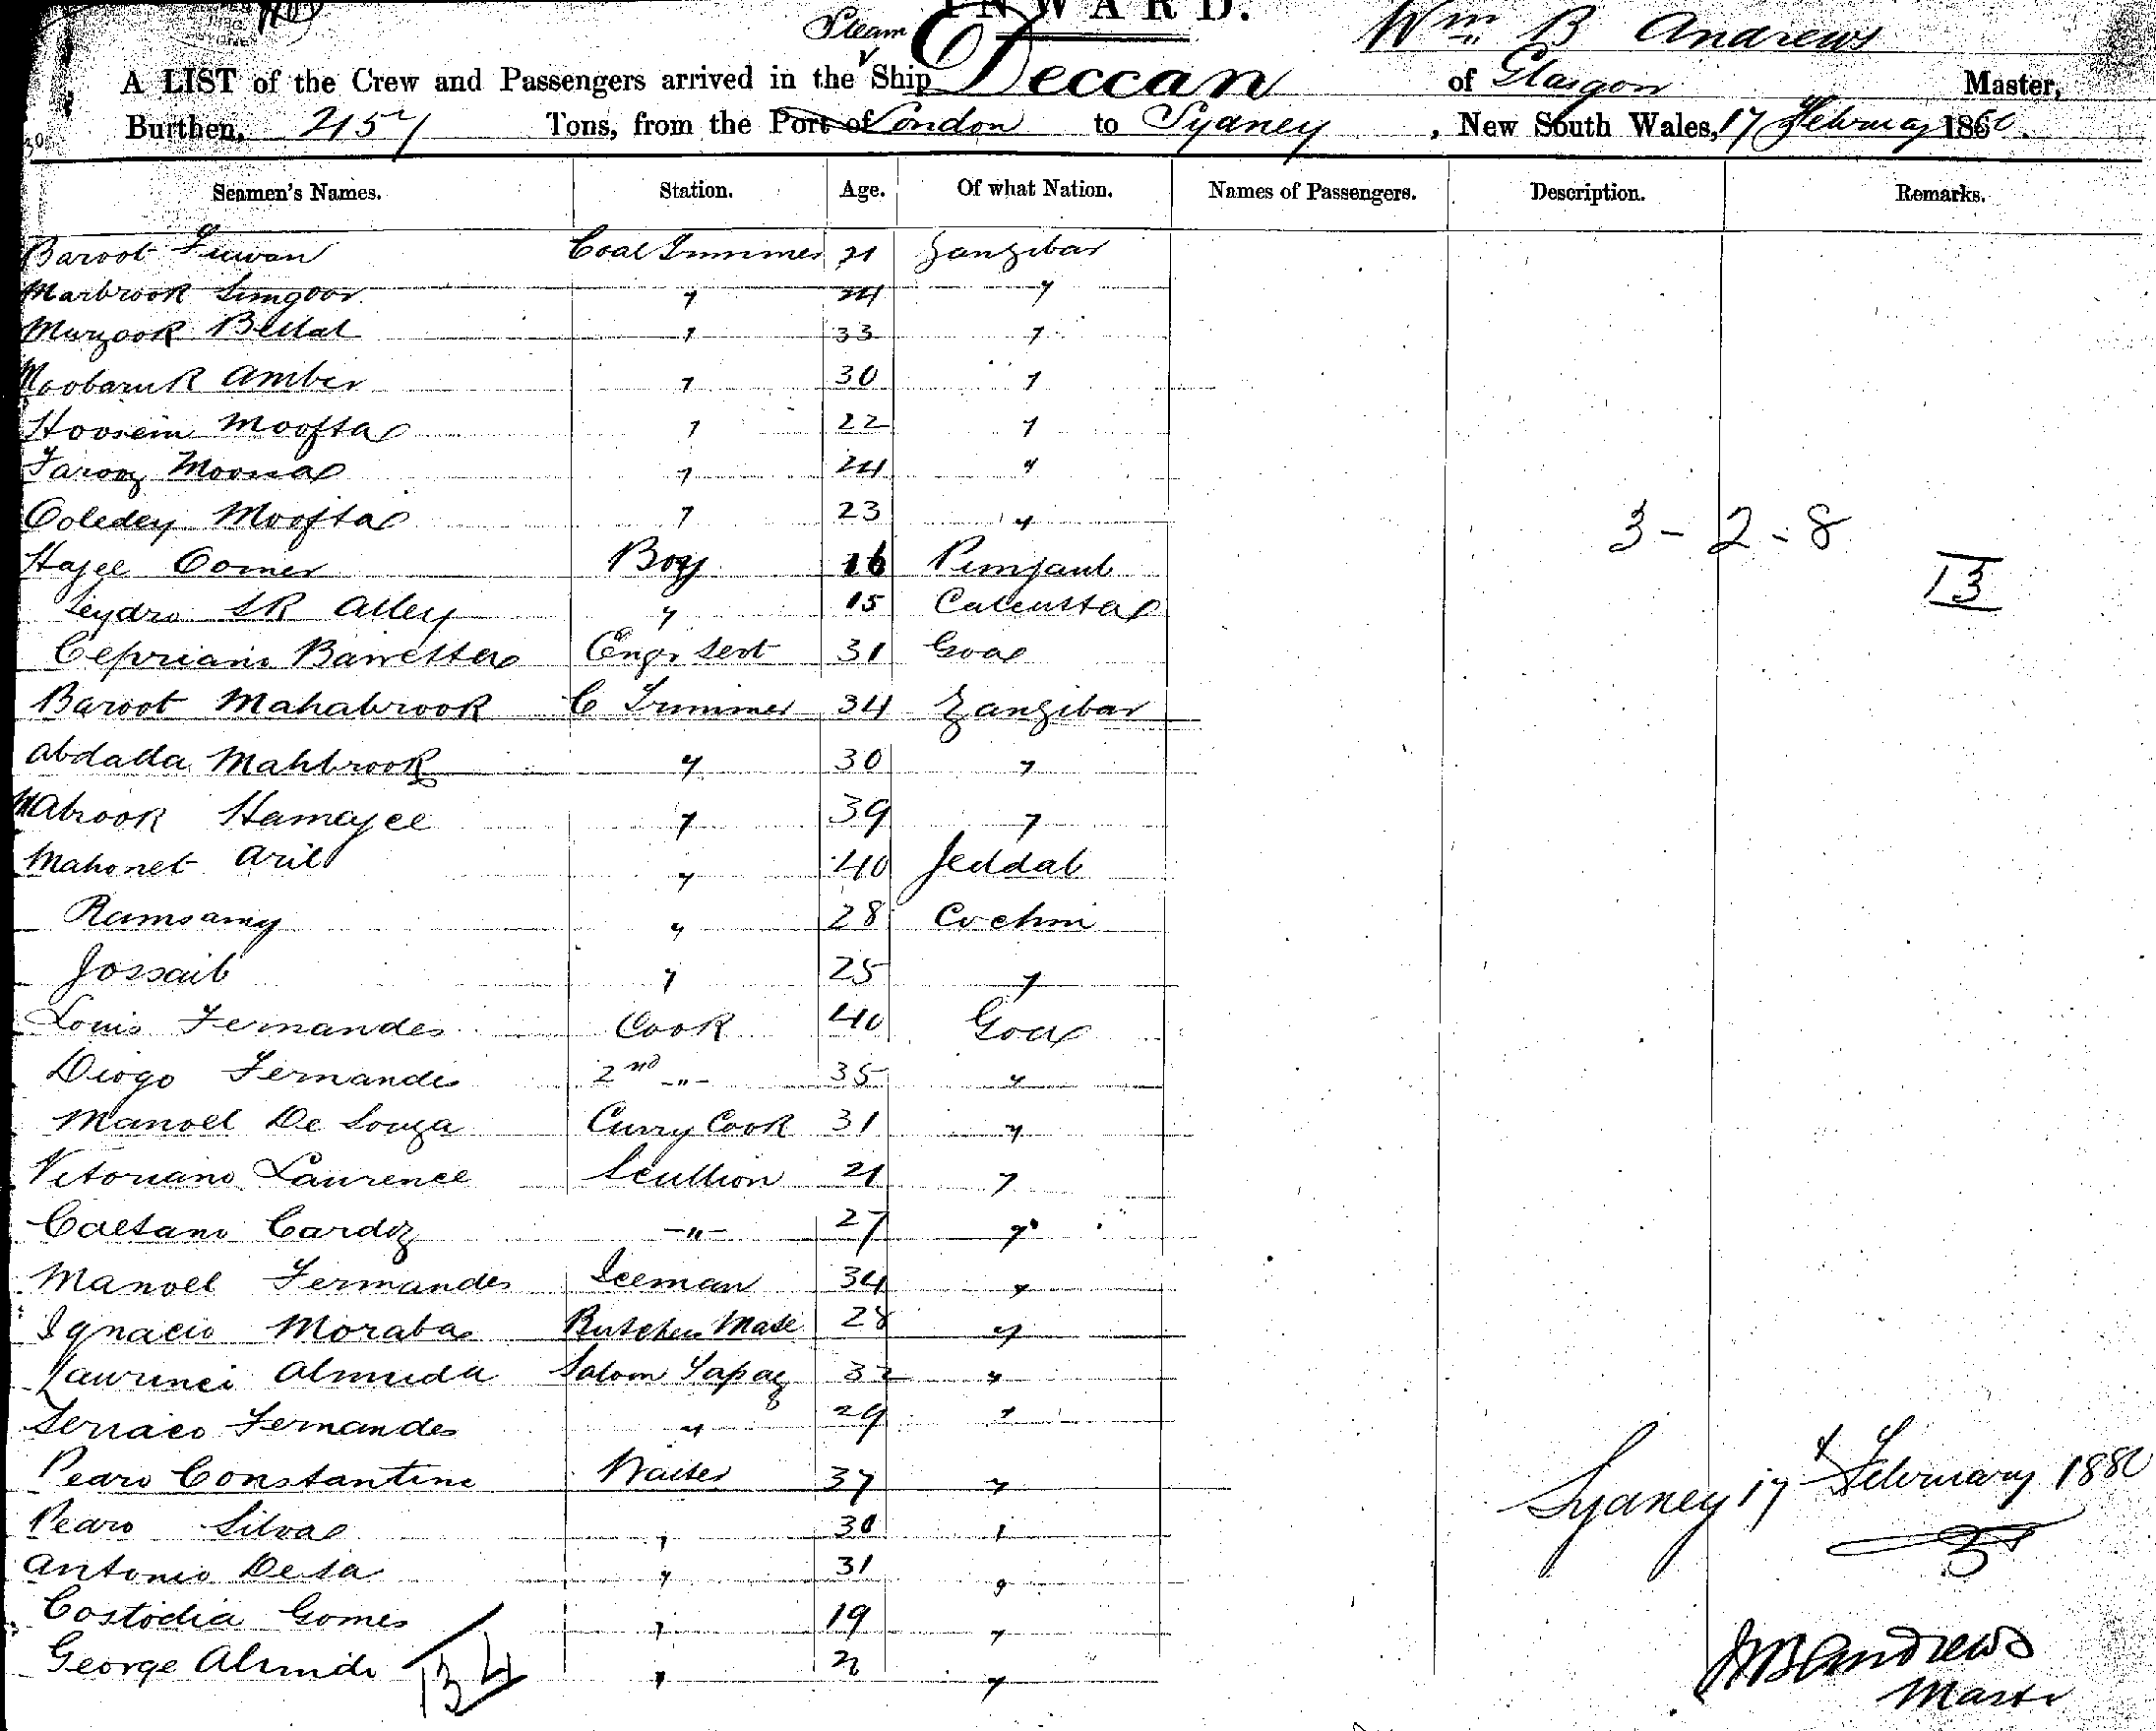 INWARD.
Steam Wm B Andrews
A LIST of the Crew and Passengers arrived in the Ship Deccan of Glasgow Master,
Burthen, 2157 Tons, from the Port of London to Sydney, New South Wales, 17 February 1880
Seamen's Names. Station. Age. Of what Nation. Names of Passengers. Description. Remarks.
Baroot Coal Trimmer 21 Zanzibar
Marbrook Simgoor " 24 "
Murzook Bellal " 33 "
Moobaruk Amber " 30 "
Hoosein Moofta " 22 "
Farooz Moosa " 24 "
Ooledey Moofta " 23 "
3-2-8
Hajee Oomer Boy 16 Punjaub
13
Seydro SK Alley " 15 Calcutta
Cepriani Barretta Engr Sert 31 Goa
Baroot Mahabrook C Trimmer 34 Zanzibar
Abdalla Mahbrook " 30 "
Mabrook Hamajee " 39 "
Mahonet Aril " 40 Jeddah
Ramsamy " 28 Cochin
Jossaib " 25 "
Louis Fernandes Cook 40 Goa
Diogo Fernandes 2nd " 35 "
Manoel De Souza Curry Cook 31 "
Vitoriano Laurence Scullion 21 "
Caetano Cardoz " 27 "
Manoel Fernandes Iceman 34 "
Ignacio Moraba Butchers Mate 28 "
Laurinci Almeida Saloon Topaz 32 "
Fernandes " 29 "
Pedro Constantine Waiter 37 "
Sydney 17th February 1880
Pedro Silva " 30 "
Antonio Desa " 31 "
Costodia Gomes " 19 "
WB Andrews
George Almide " "
134
Master